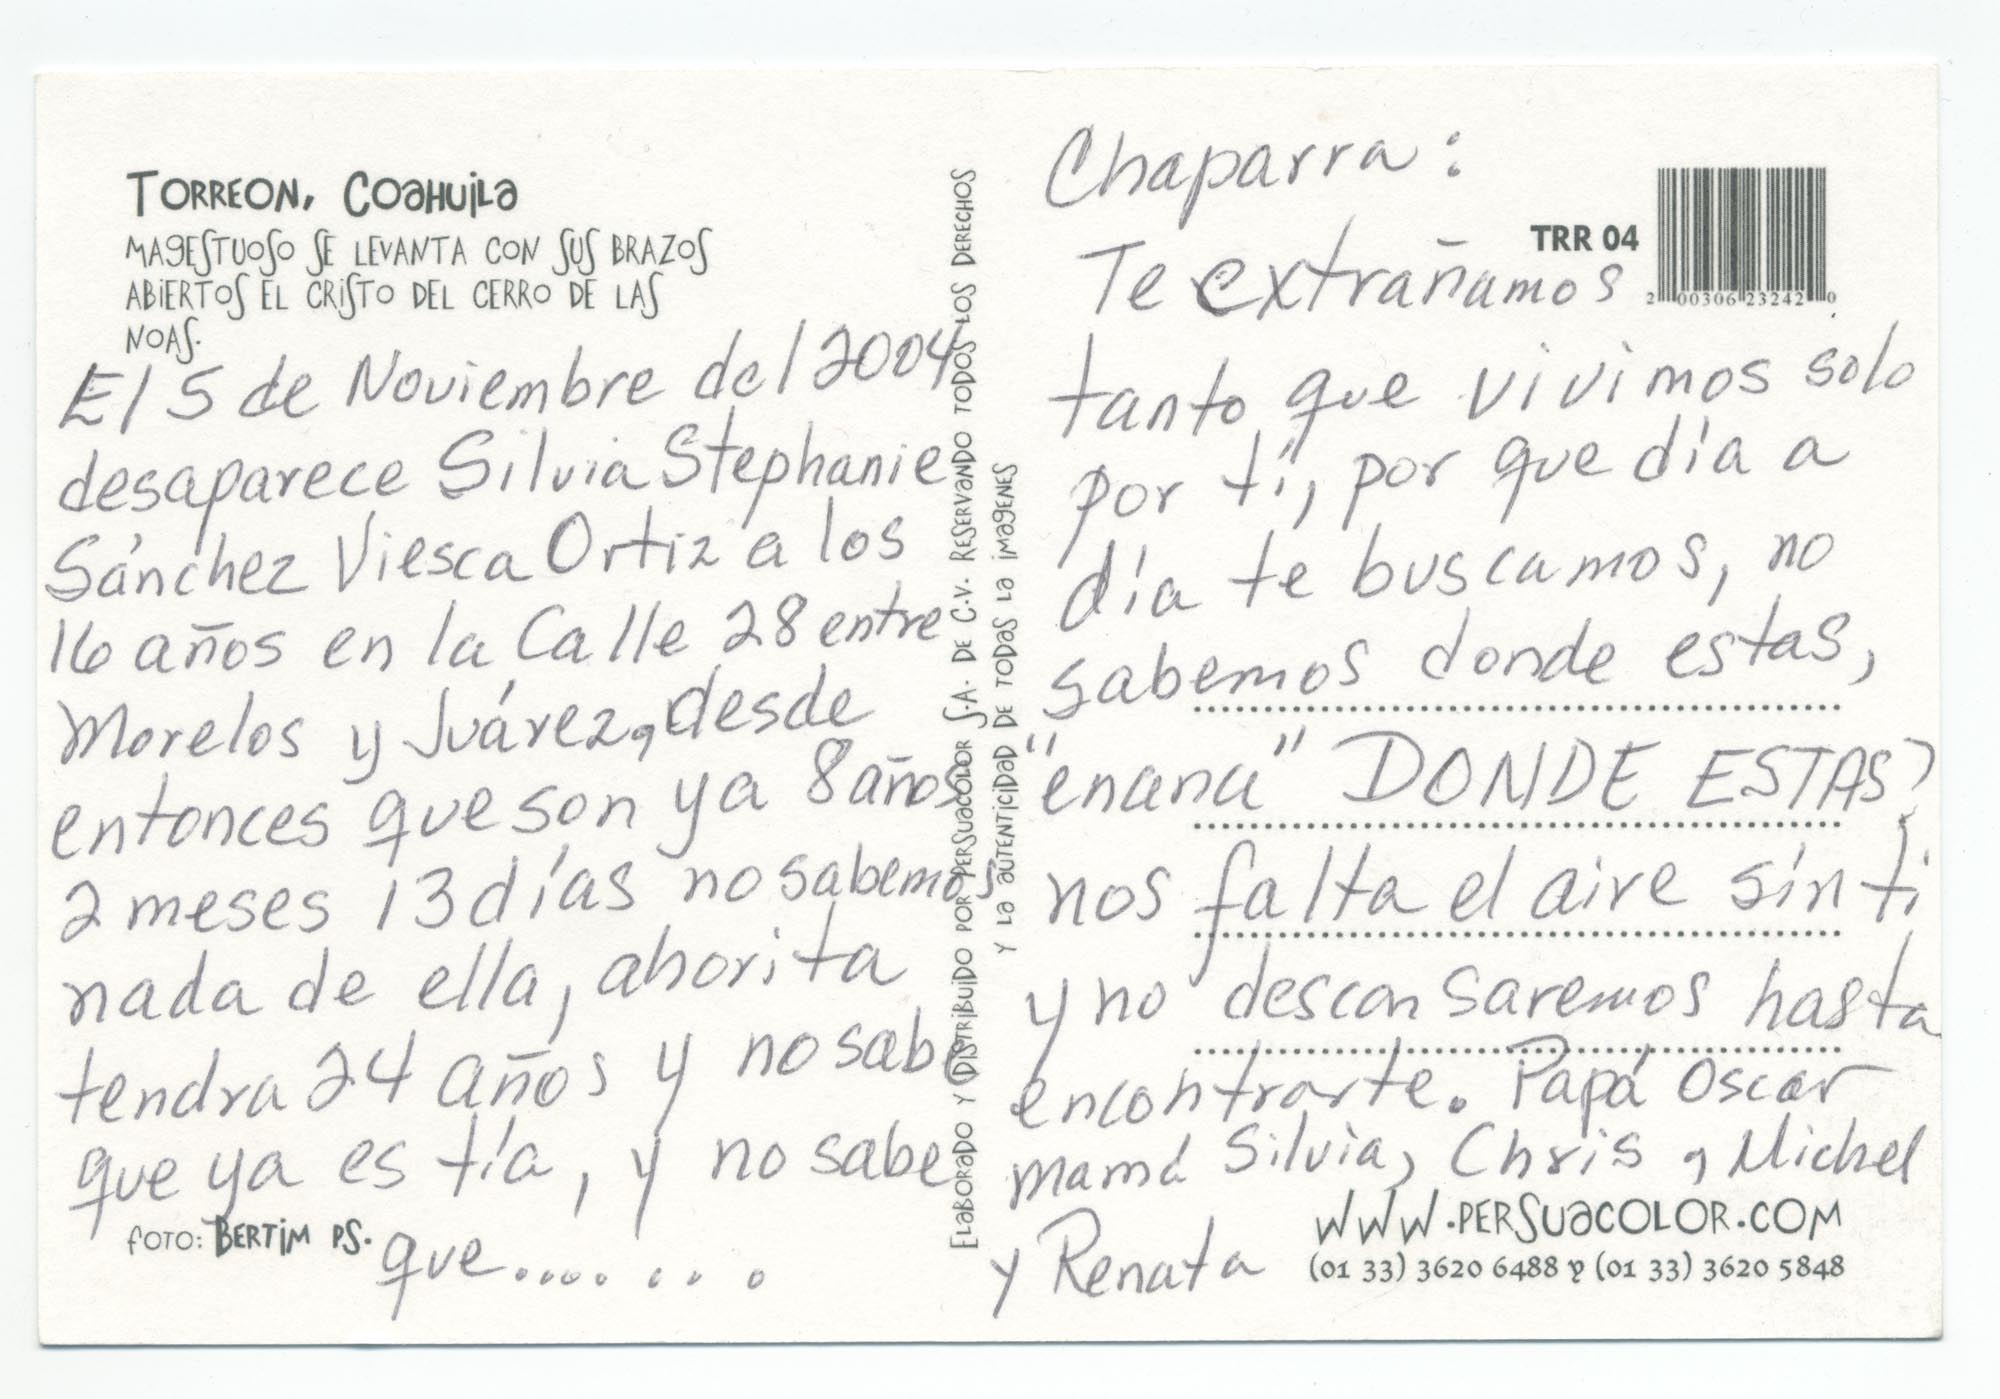 TORREON, COAHUILA
MAGESTUOSO SE LEVANTA CON SUS BRAZOS
ABIERTOS EL CRISTO DEL CERRO DE LAS
NOAS.
El 5 de Noviembre del 2004
desaparece Silvia Stephanie
Sánchez Viesca Ortiz a los
16 años en la Calle 28 entre
Morelos y Juárez, desde
entonces que son ya 8 años
2 meses 13 días no sabemos
nada de ella, ahorita
tendra 24 años y no sabe
que ya es tía, y no sabe
que........
FOTO: BERTIM PS.
ELABORADO Y DISTRIBUIDO POR PERSUACOLOR S.A. DE C.V. RESERVANDO TODOS LOS DERECHOS
Y LA AUTENTICIDAD DE TODAS LA IMAGENES
Chaparra:
TRR 04
2 00306 23242 0
Te extrañamos
tanto que vivimos solo
por ti, por que día a
día te buscamos, no
sabemos donde estas,
"enana" DONDE ESTAS?
nos falta el aire sín ti
y no descansaremos hasta
encontrarte. Papá Oscar
mamá Silvia, Chris, Michel
y Renata
WWW.PERSUACOLOR.COM
(01 33) 3620 6488 y (01 33) 3620 5848